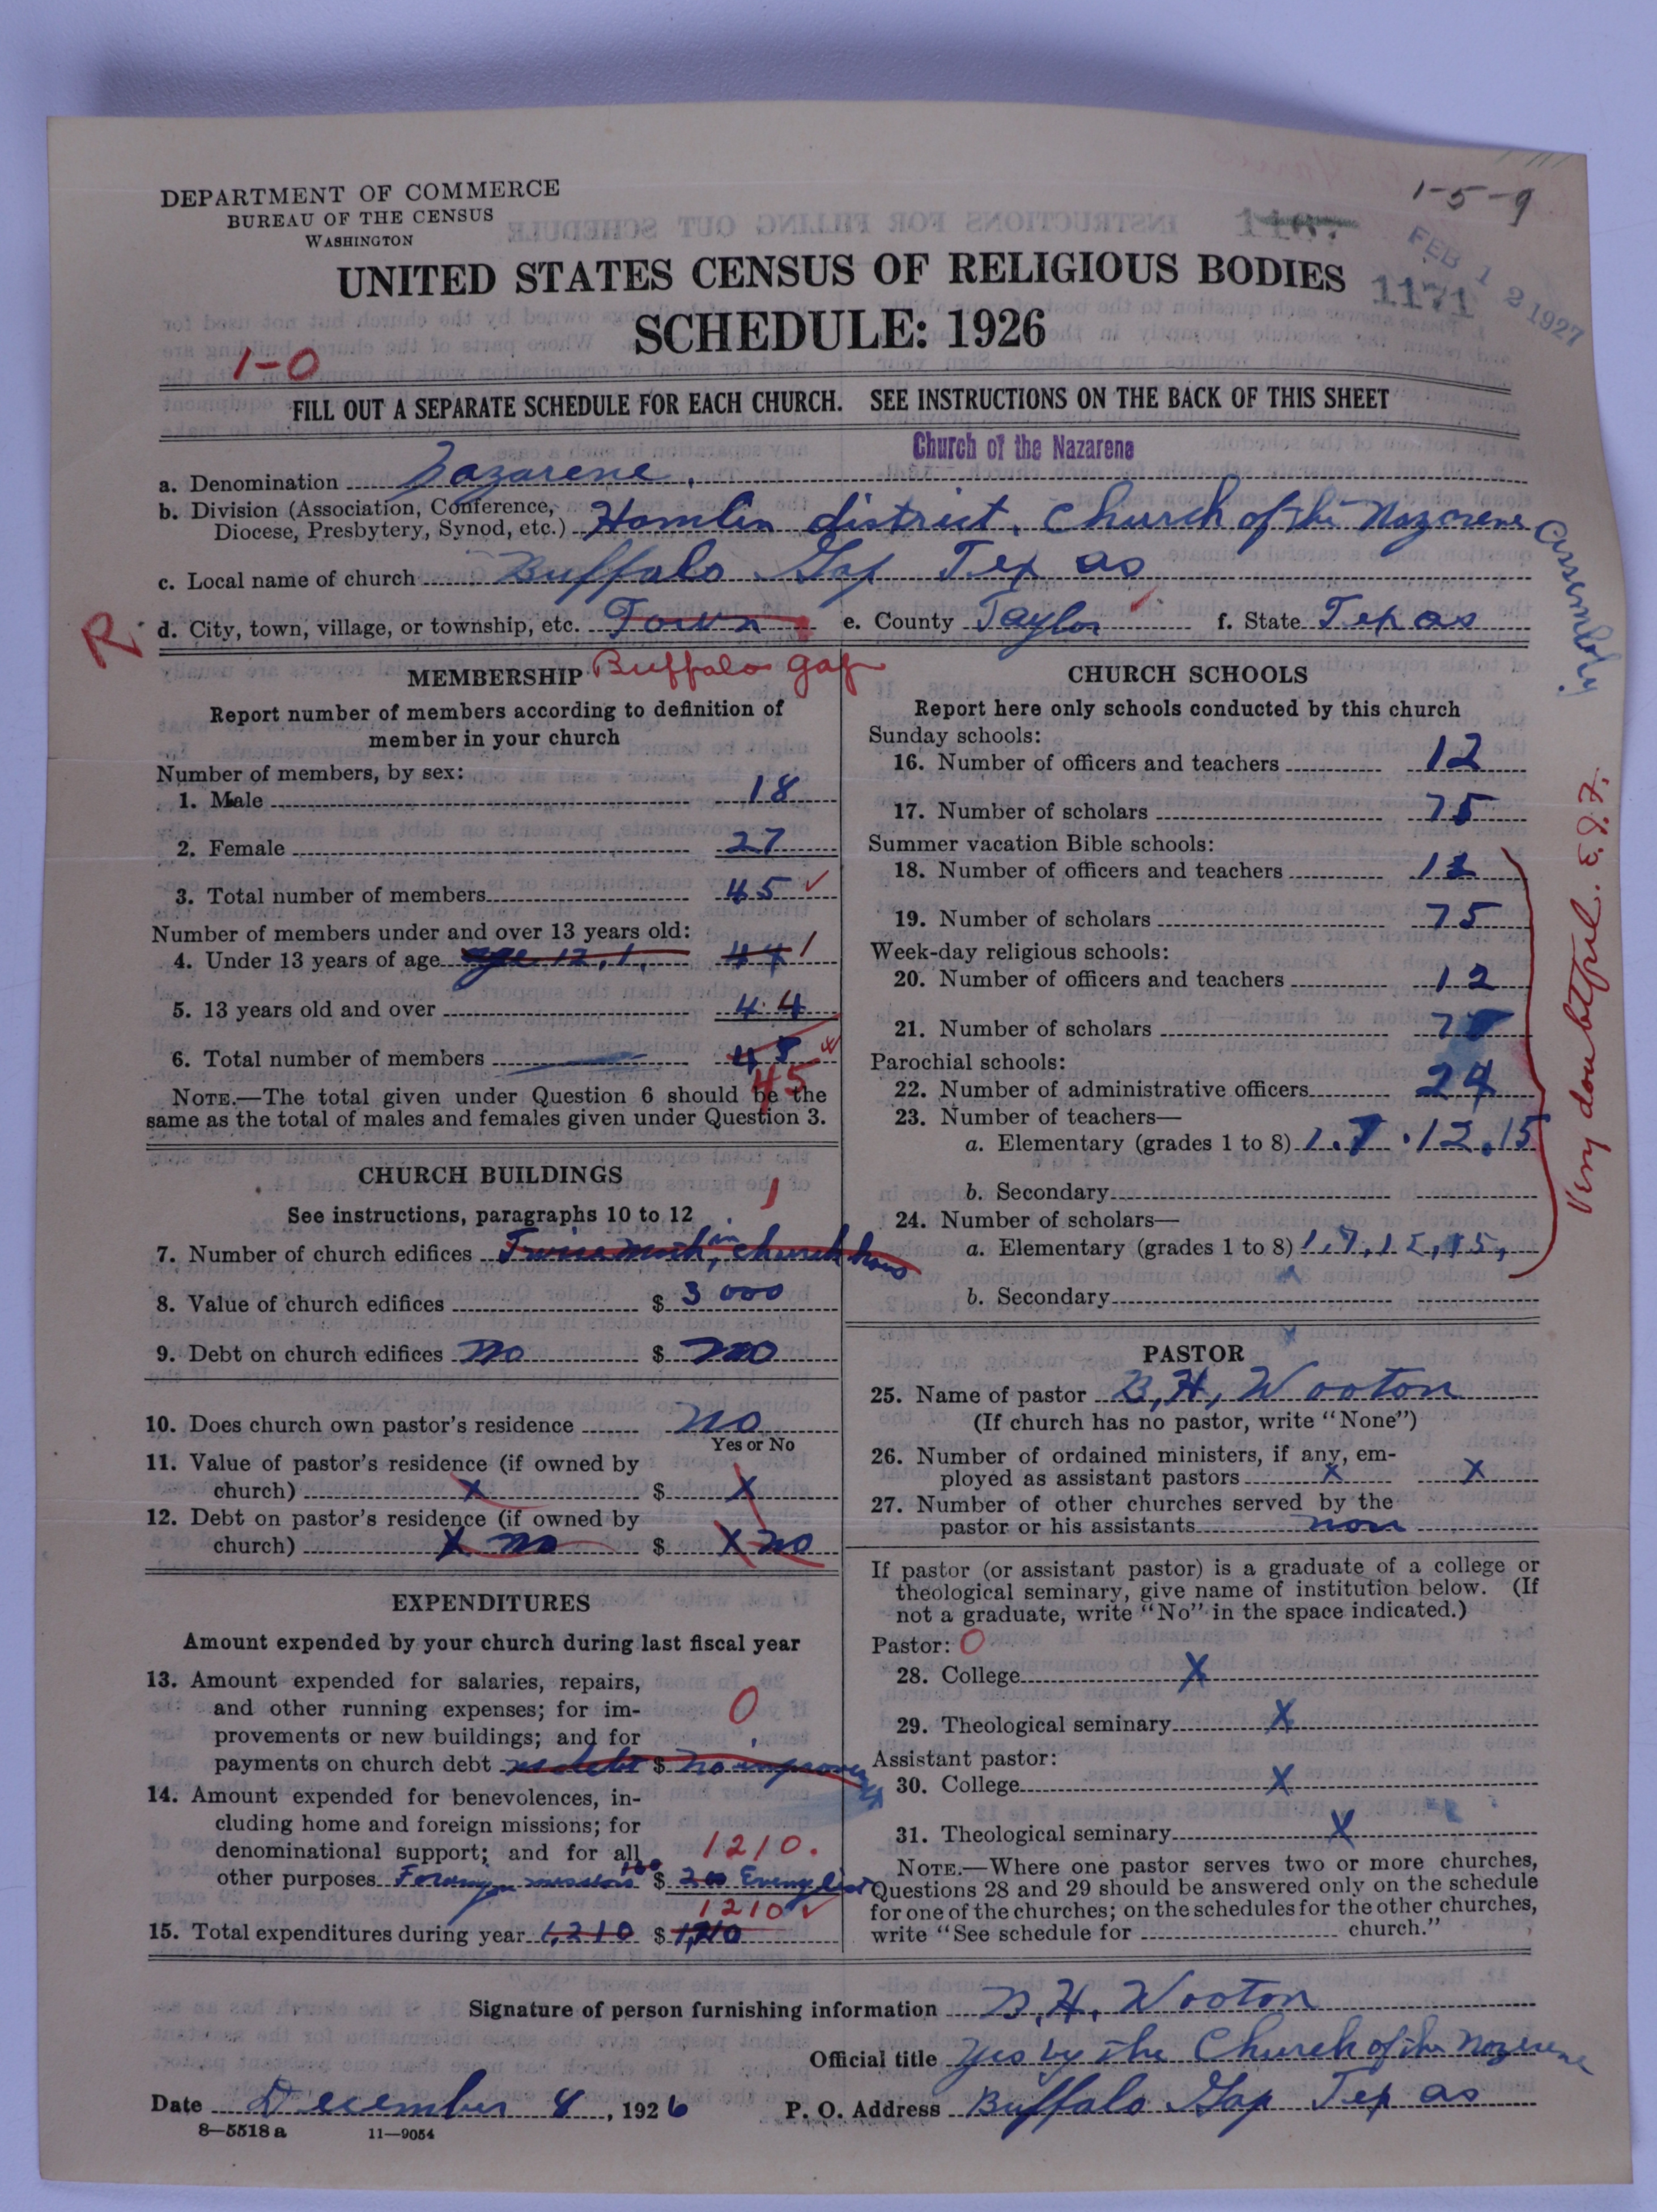 1-5-9
DEPARTMENT OF COMMERCE
BUREAU OF THE CENSUS
WASHINGTON
FEB 12 1927
1171
UNITED STATES CENSUS OF RELIGIOUS BODIES
SCHEDULE: 1926
1-0
FILL OUT A SEPARATE SCHEDULE FOR EACH CHURCH. SEE INSTRUCTIONS ON THE BACK OF THIS SHEET
Church of the Nazarene
a. Denomination Nazarene
b. Division (Association, Conference,
Diocese, Presbytery, Synod, etc.) Hamlin district, Church of the Nazarene Assembly
c. Local name of church Buffalo Gap Texas
R d. City, town, village, or township, etc. Town e. County Taylor f. State Texas
Buffalo gap
MEMBERSHIP
Report number of members according to definition of
member in your church
Number of members, by sex:
1. Male 18
2. Female 27
3. Total number of members 45
Number of members under and over 13 years old:
4. Under 13 years of age age 12, 1, 44 1
5. 13 years old and over 44
6. Total number of members 45
45
NOTE.—The total given under Question 6 should be the
same as the total of males and females given under Question 3.
CHURCH BUILDINGS
See instructions, paragraphs 10 to 12
1
7. Number of church edifices in church
8. Value of church edifices $ 3000
9. Debt on church edifices no $ no
10. Does church own pastor's residence no
Yes or No
11. Value of pastor's residence (if owned by
church) X $ X
12. Debt on pastor's residence (if owned by
church) X no $ X no
EXPENDITURES
Amount expended by your church during last fiscal year
13. Amount expended for salaries, repairs,
and other running expenses; for im-
provements or new buildings; and for 0
payments on church debt no debt $ no improvements
14. Amount expended for benevolences, in-
cluding home and foreign missions; for
denominational support; and for all 1210.
other purposes Foreign missions 100 $ 200 Evangelist
1210
15. Total expenditures during year 1,210 $ 1,210
CHURCH SCHOOLS
Report here only schools conducted by this church
Sunday schools:
16. Number of officers and teachers 12
17. Number of scholars 75
Summer vacation Bible schools:
18. Number of officers and teachers 12
19. Number of scholars 75
Week-day religious schools:
20. Number of officers and teachers 12
21. Number of scholars 75
Parochial schools:
22. Number of administrative officers 24
23. Number of teachers—
a. Elementary (grades 1 to 8) 1.7.12.15
b. Secondary
24. Number of scholars—
a. Elementary (grades 1 to 8) 1,7,12,15,
b. Secondary
Very doubtful. E.J.F.
PASTOR
25. Name of pastor B, H, Wooton
(If church has no pastor, write "None")
26. Number of ordained ministers, if any, em-
ployed as assistant pastors X X
27. Number of other churches served by the
pastor or his assistants non
If pastor (or assistant pastor) is a graduate of a college or
theological seminary, give name of institution below. (If
not a graduate, write "No" in the space indicated.)
Pastor: 0
28. College X
29. Theological seminary X
Assistant pastor:
30. College X
31. Theological seminary X
NOTE.—Where one pastor serves two or more churches,
Questions 28 and 29 should be answered only on the schedule
for one of the churches; on the schedules for the other churches,
write "See schedule for church."
Signature of person furnishing information B, H, Wooton
Official title yes by the Church of the Nazerene
Date December 8, 1926 P. O. Address Buffalo Gap Texas
8—5518 a 11—9054